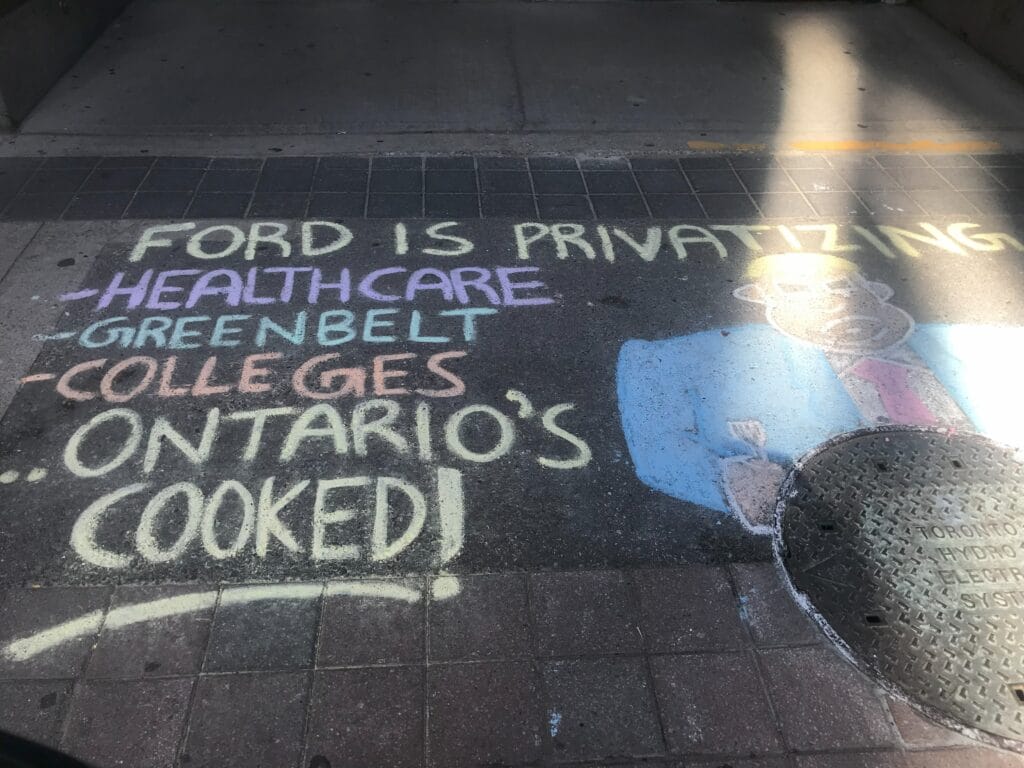 FORD IS PRIVATIZING
-HEALTHCARE
-GREENBELT
-COLLEGES
..ONTARIO'S
COOKED!
TORONTO
HYDRO
ELECTR
SYST